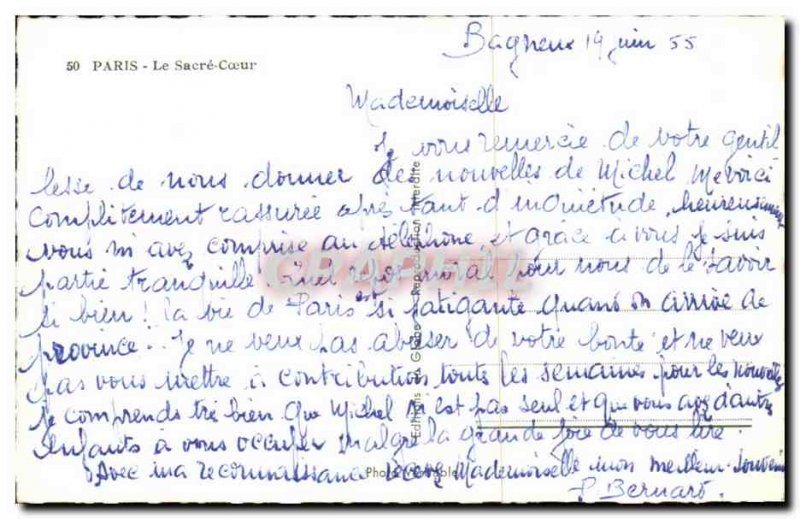 Bagneux 19 juin 55
50 PARIS - Le Sacré-Cœur
Mademoiselle
Je vous remercie de votre gentil
lesse de nous donner des nouvelles de Michel Me voici
complitement rassurée après tant d'inquiétude, heureusement
vous m'avez comprise au téléphone et grace à vous je suis
partie tranquille quel repos moral pour nous de le savoir
si bien! la vie de Paris est si fatigante quand on arrive de
province. Je ne veux pas abuser de votre bonté et ne veux
pas vous mettre à contribution toutes les semaines pour les nouvelles
je comprends très bien que Michel n'est pas seul et que vous avez d'autres
enfants à vous occuper malgré la grande joie de vous lire
Avec ma reconnaissance recevez Mademoiselle mon meilleur souvenir
P. Bernard.
Reproduction Interdite
Editions du Globe
Photo véritable